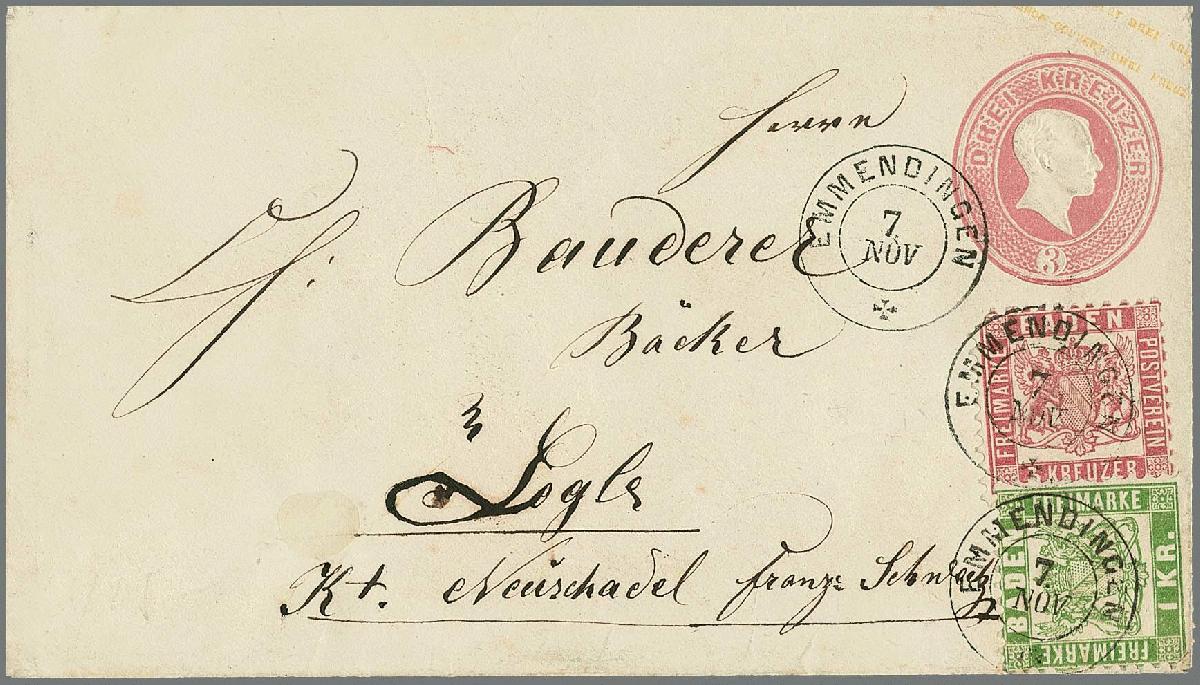 DREI KREUZER
3
Herrn
Bauderer
Bäcker
Kt. Neuschadel franz. Schweiz
EMMENDINGEN
7
NOV
BADEN
FREIMARKE
POSTVEREIN
3 KREUZER
EMMENDINGEN
7
NOV
FREIMARKE
BADEN
1 KR.
FREIMARKE
EMMENDINGEN
7
NOV